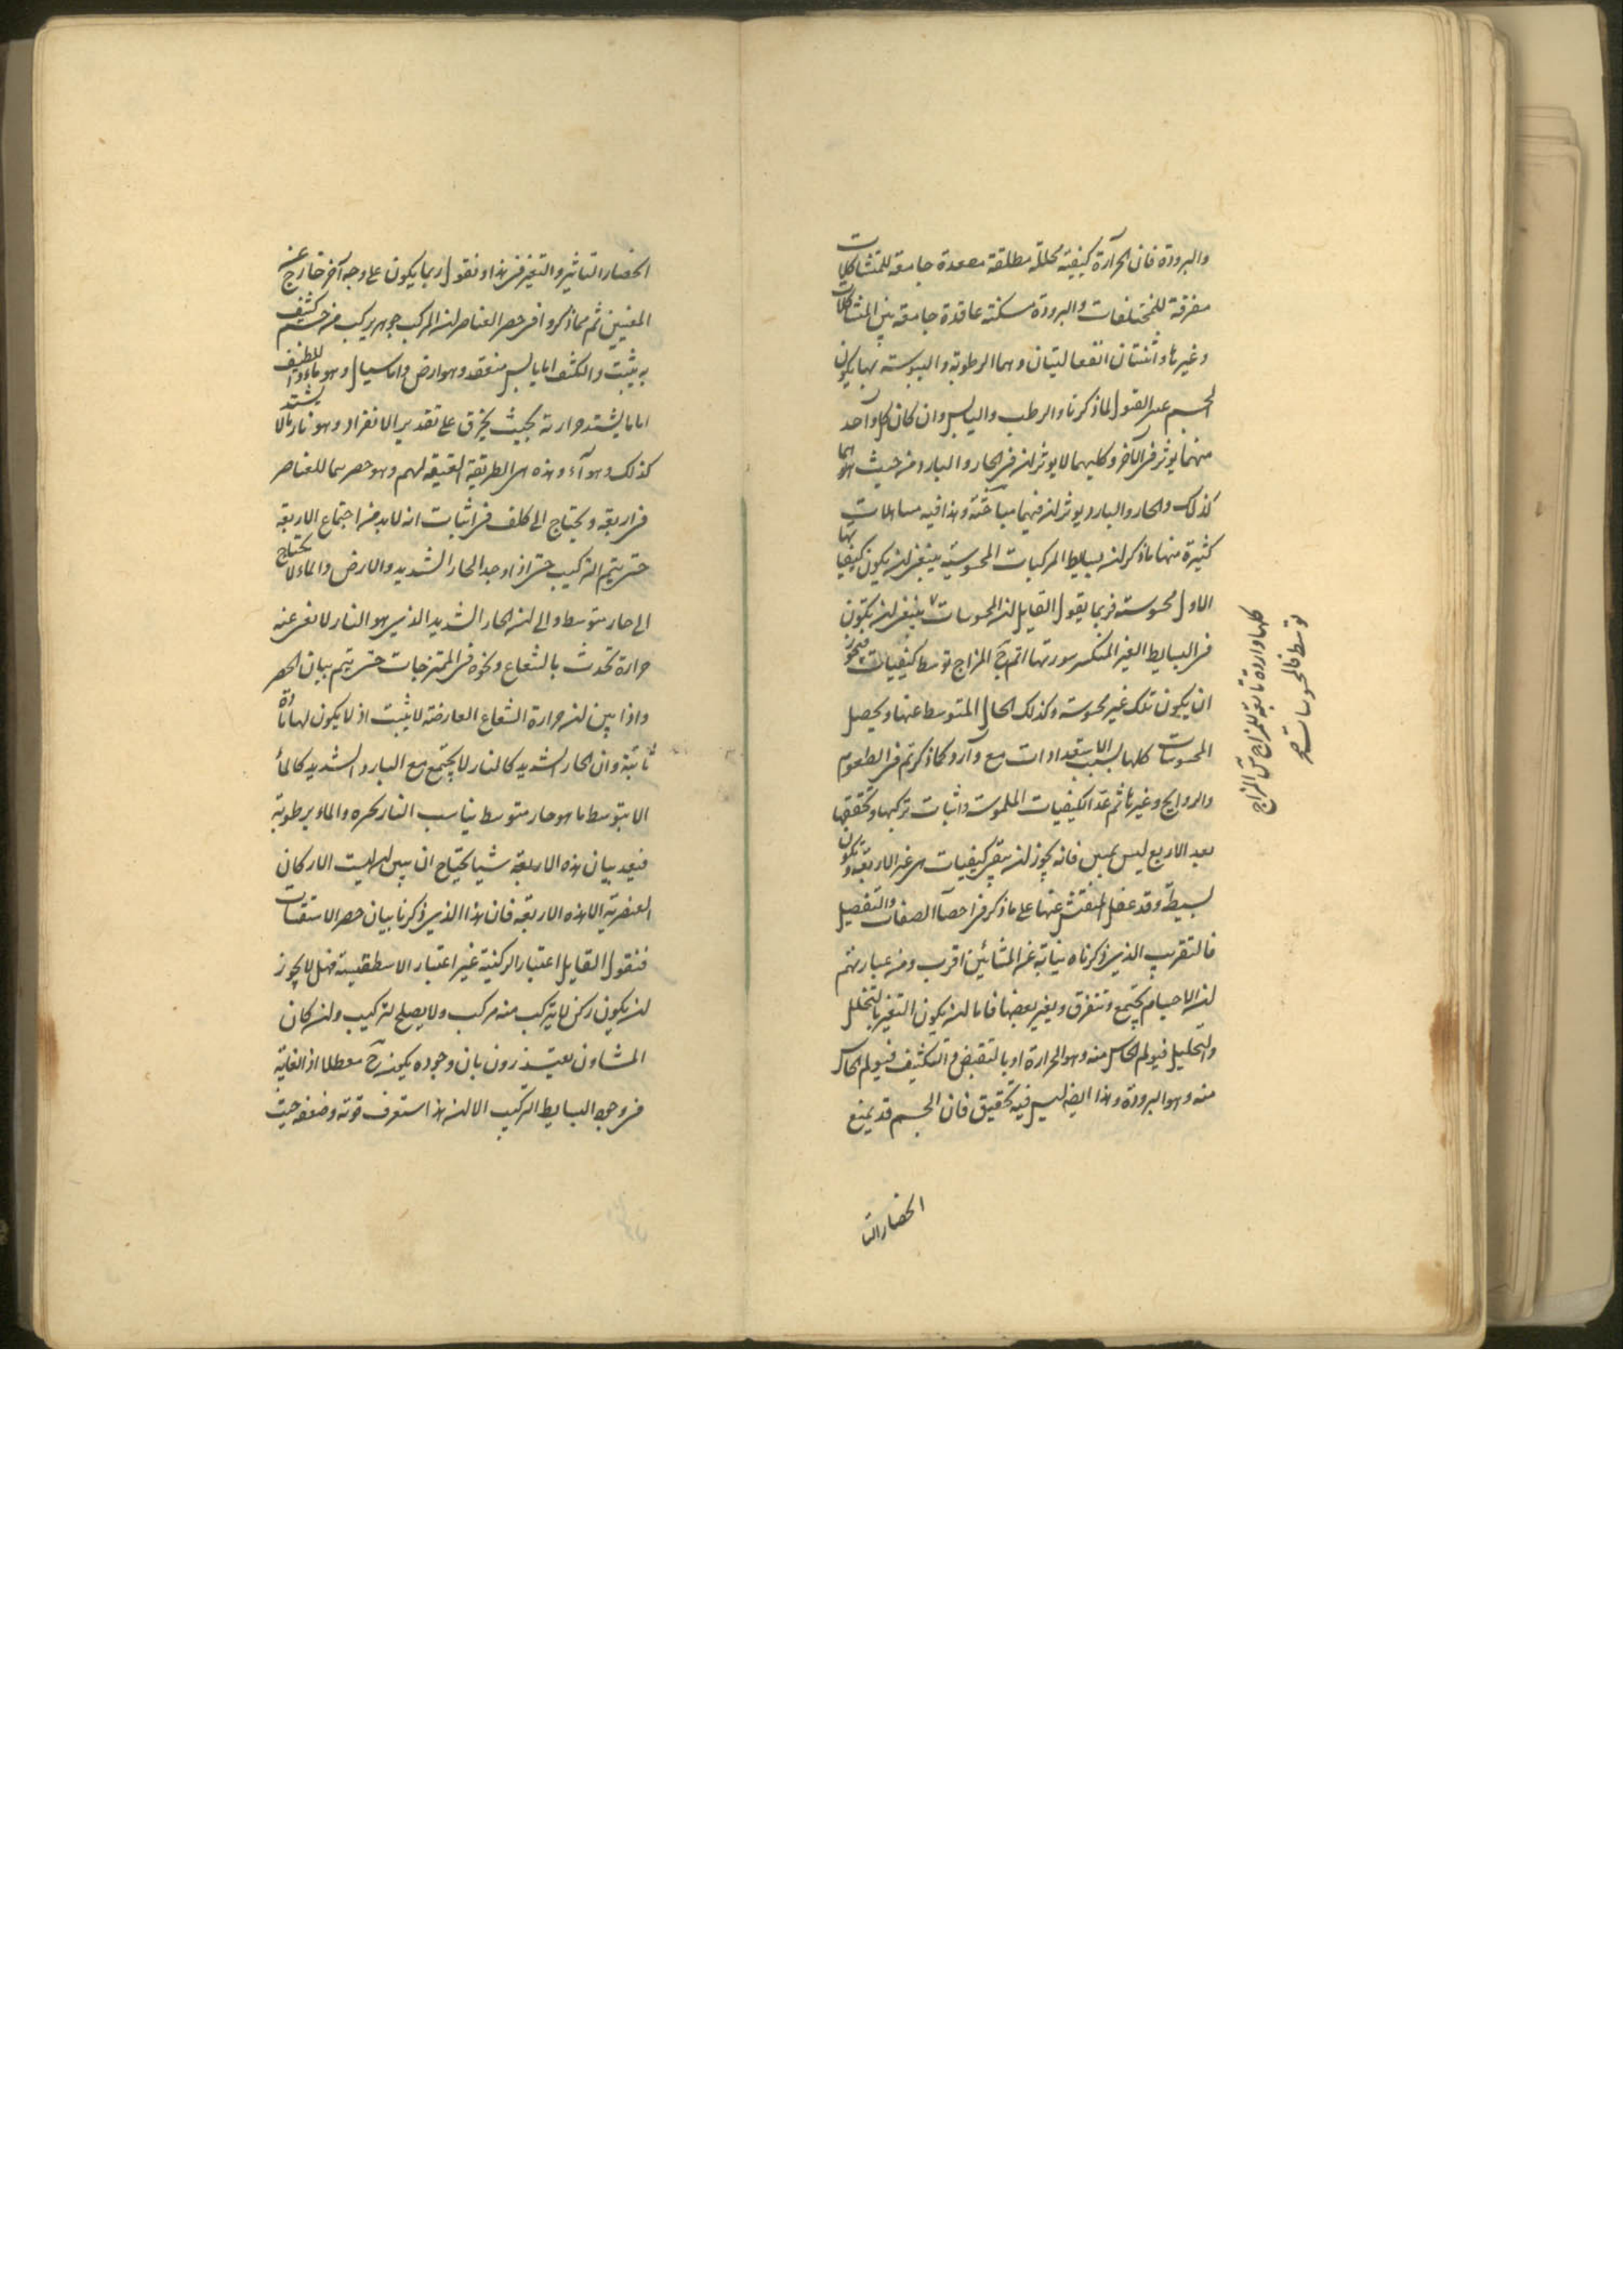 والبرودة فان الحرارة كيفية محللة مطلقة مصعدة جامعة للمتشاكلات
مفرقة للمختلفات والبرودة مسكنة عاقدة جامعة بين المتشاكلات
وغيرها واثنتان انفعاليتان وهما الرطوبة واليبوسة بها يكون
الجسم عسر القبول لما ذكرنا والرطب واليابس وان كان كل واحد
منهما يوثر فى الآخر وكليهما لا يوثران فى الحار والبارد من حيث هما
كذلك والحار والبارد يوثران فيهما وهذا فيه مساهلات
كثيرة منها ما ذكر ان بسايط المركبات المحسوسة ينبغى ان يكون كيفياتها
الاول محسوسة فربما يقول القايل ان المحسوسات ينبغى ان يكون
فى البسايط الغير المنكسر سورتها ثم المزاج توسط كيفيات فيجوز
ان يكون تلك غير محسوسة وكذلك الحال المتوسط عنها ويحصل
المحسوسات كلها بسبب الاستعدادات مع وارد كما ذكرتم فى الطعوم
والروايح وغيرها ثم عد الكيفيات الملموسة واثبات تركبها وتحققها
بعد الاربع ليس بمبين فانه يجوز ان يبقى كيفيات هى غير الاربعة وتكون
بسيطة وقد غفل المفتش عنها على ما ذكر فى احصا الصفات والتفصيل
فالتقريب الذى ذكرناه نيابة عن المشائين اقرب ومن عبارتهم
ان الاجسام يجتمع وتتفرق ويغير بعضها فاما ان يكون التغير بالتخلخل
والتحليل فيولم الحاس منه وهو الحرارة او بالتقبض والتكثيف فيولم الحاس
منه وهو البرودة وهذا ايضا ليس فيه تحقيق فان الجسم قد يمنع
انحصار التا
كلها واردة تابعة للمزاج من المزاج
توسط فالمحسوسات صح
انحصار التاثير والتغير فى هذا ونقول ربما يكون على وجه آخر خارج عن
المعنيين ثم مما ذكروا فى حصر العناصر ان المركب جوهر يركب من جسم كثيف
به يثبت والكثيف اما يابس منعقد وهو ارض واما سيال وهو ماء واللطيف
اما ما يشتد حرارته بحيث يحرق على تقدير الانفراد وهو نار ما لا يشتد
كذلك وهو هواء وهذه هى الطريقة العتيقة لهم وهو حصر ما للعناصر
فى اربعة ويحتاج الى كلف فى اثبات انه لا بد من اجتماع الاربعة
حتى يتم التركيب حتى اذا وجد الحار الشديد والارض والماء لا يحتاج
الى حار متوسط والى ان الحار الشديد الذى هو النار لا يغنى عنه
حرارة تحدث بالشعاع ونحوه فى الممتزجات حتى يتم بيان الحصر
واذا بين ان حرارة الشعاع العارضة لا يثبت اذ لا يكون لها مادة
ثابتة وان الحار الشديد كالنار لا يجتمع مع البارد الشديد كالماء
الا بتوسط ما هو حار متوسط يناسب النار بحره والماء برطوبة
فبعد بيان هذه الاربعة شيا يحتاج ان يبين ان ليست الاركان
العنصرية الا هذه الاربعة فان هذا الذى ذكرنا بيان حصر الاستقسات
فنقول القايل اعتبار الركنية غير اعتبار الاسطقسية فهل لا يجوز
ان يكون ركن لا يتركب منه مركب ولا يصلح لتركيب وان كان
المشاون يعتذرون بان وجوده يكون ح معطلا اذ الغاية
فى وجود البسايط التركيب الا ان هذا استعرف قوته وضعفه حيث